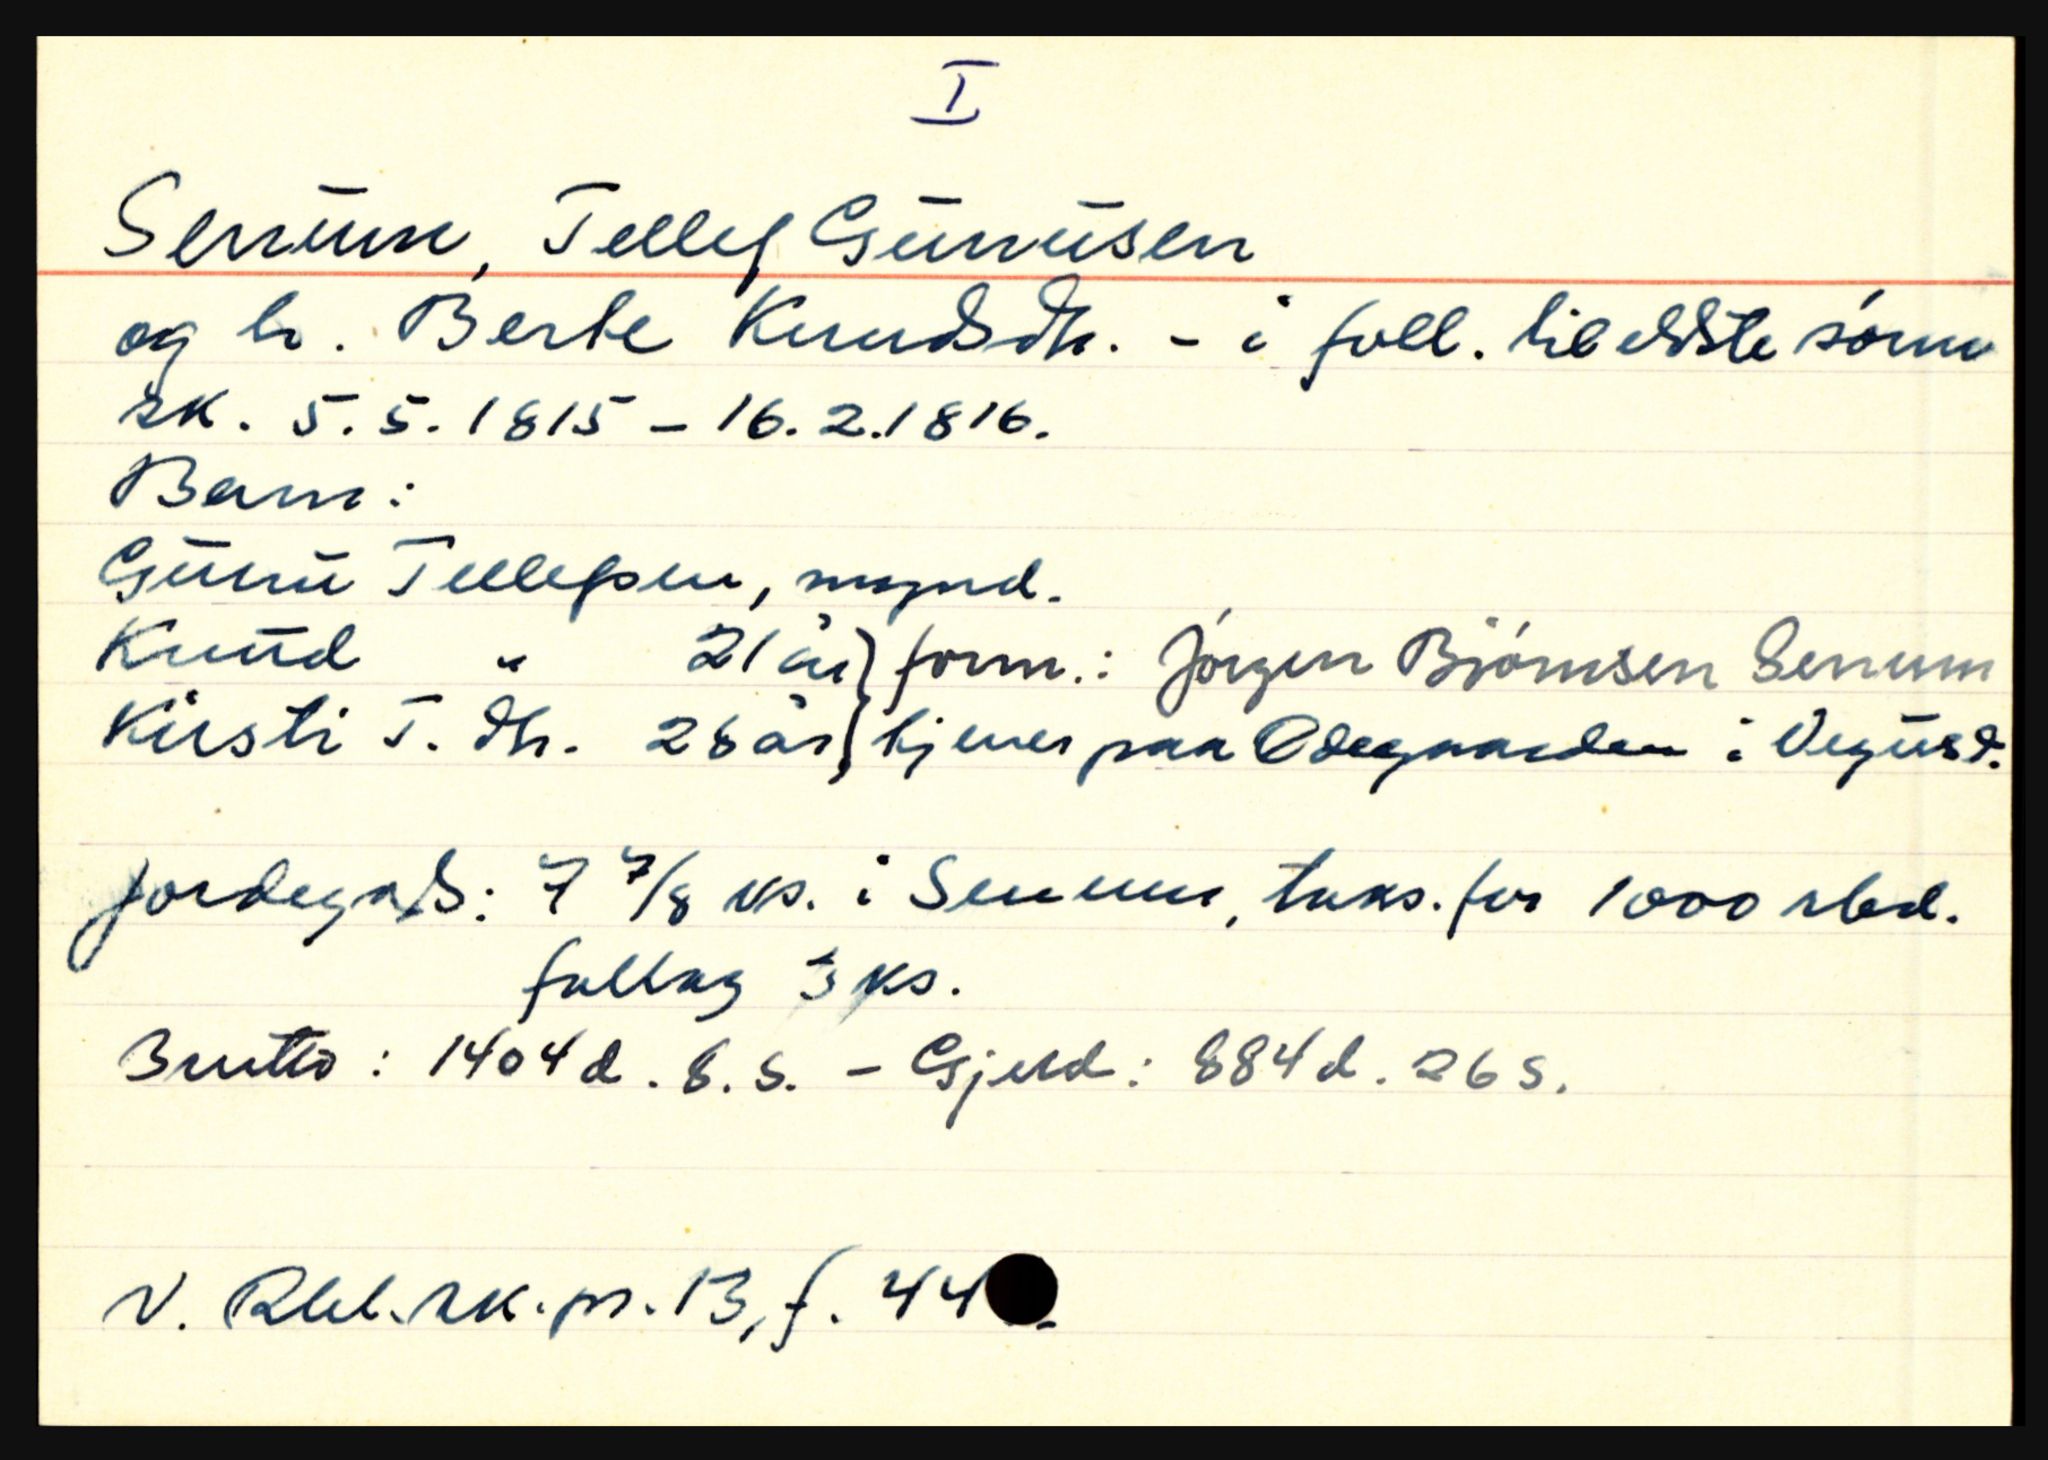 I
Senum, Tellef Gunnusen
og h. Berte Knudsdh. - i foll. til eldste sönn
sk. 5.5.1815 - 16.2.1816.
Barn:
Gunnu Tellefsen, mynd.
Knud " 21 år } form.: Jörgen Björnsen Senum
Kirsti T. dh. 28 år } tjener paa Ødegaarden i Vegusd.
Jordegods: 7 7/8 ks. i Senum, taks. for 1000 rbd.
fallag 3 ks.
Brutto: 1404 d. 8. s. - Gjeld: 884 d. 26 s.
V. Rbl. sk. pr. 13, f. 44